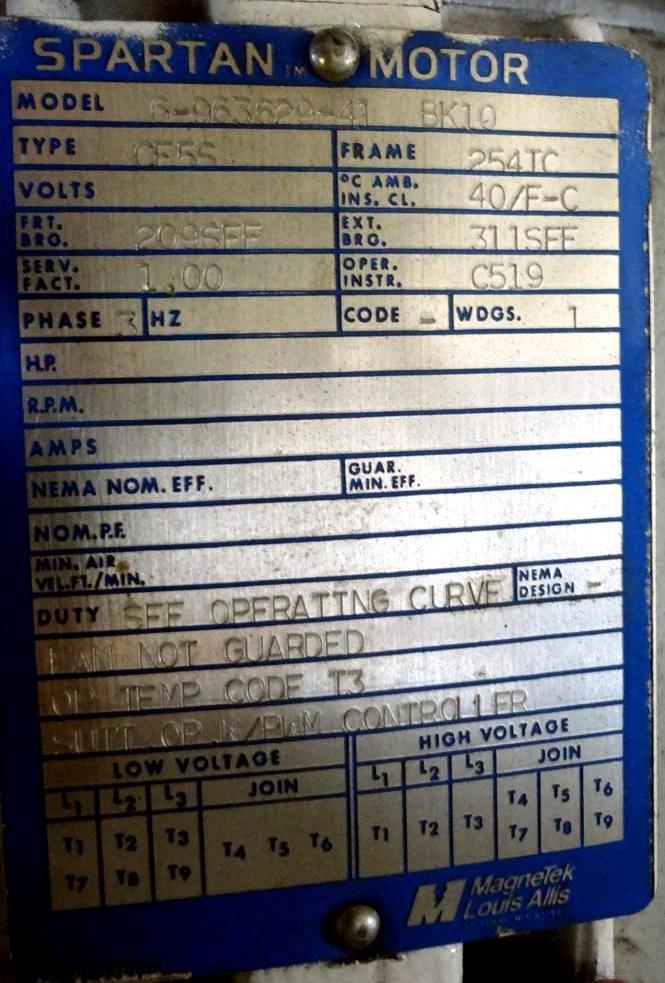 SPARTAN TM MOTOR
MODEL 6-963629-41 BK10
TYPE CF5S FRAME 254TC
VOLTS °C AMB. INS. CL. 40/F-C
FRT. BRG. 209SFF EXT. BRG. 311SFF
SERV. FACT. 1.00 OPER. INSTR. C519
PHASE 3 HZ CODE - WDGS. 1
H.P.
R.P.M.
AMPS
NEMA NOM. EFF. GUAR. MIN. EFF.
NOM. P.F.
MIN. AIR VEL. FT./MIN.
DUTY SEE OPERATING CURVE NEMA DESIGN -
FAN NOT GUARDED
OP TEMP CODE T3
SUIT OP W/PWM CONTROLLER
LOW VOLTAGE HIGH VOLTAGE
L1 L2 L3 JOIN L1 L2 L3 JOIN
T1 T2 T3 T4 T5 T6 T1 T2 T3 T4 T5 T6
T7 T8 T9 T7 T8 T9
MagneTek
Louis Allis